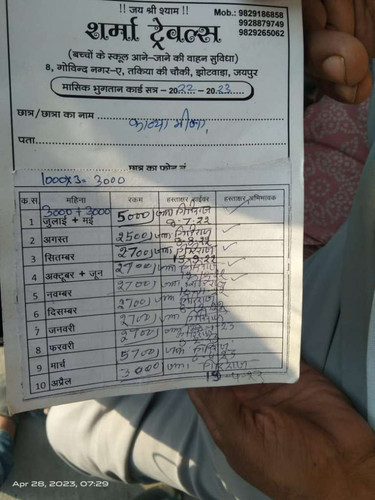 !! जय श्री श्याम !!
Mob.: 9829186858
9928879749
9829265062
शर्मा ट्रेवल्स
(बच्चों के स्कूल आने-जाने की वाहन सुविधा)
8, गोविन्द नगर-ए, तकिया की चौकी, झोटवाड़ा, जयपुर
मासिक भुगतान कार्ड सत्र - 2022 - 2023
छात्र/छात्रा का नाम काव्या मीणा
पता
छात्र का फोन नं
1000x3 = 3000
क.स. महिना रकम हस्ताक्षर ड्राईवर हस्ताक्षर अभिभावक
3000 + 3000
1 जुलाई + मई 5000 जमा गिर्राज 7-22
2 अगस्त 2500 जमा गिर्राज
3 सितम्बर 2700 जमा गिर्राज
4 अक्टूबर + जून 2700 जमा गिर्राज
5 नवम्बर 2700 जमा गिर्राज
6 दिसम्बर 2700 जमा गिर्राज
7 जनवरी 2700 जमा गिर्राज
8 फरवरी 2700 जमा
9 मार्च 5700 जमा गिर्राज
10 अप्रैल 3000 जमा गिर्राज
Apr 28, 2023, 07:29